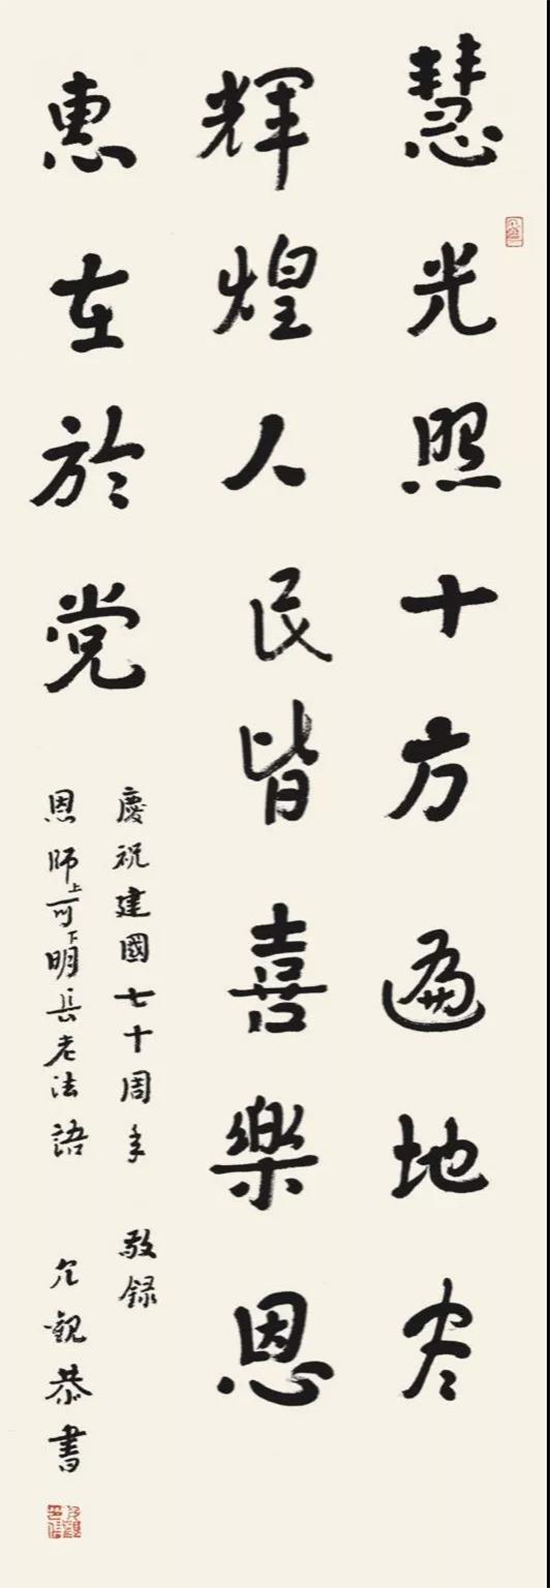 慧光照十方遍地尽
輝煌人民皆喜樂恩
惠在於党
慶祝建國七十周年 敬録
恩師上可下明長老法語 允觀恭書